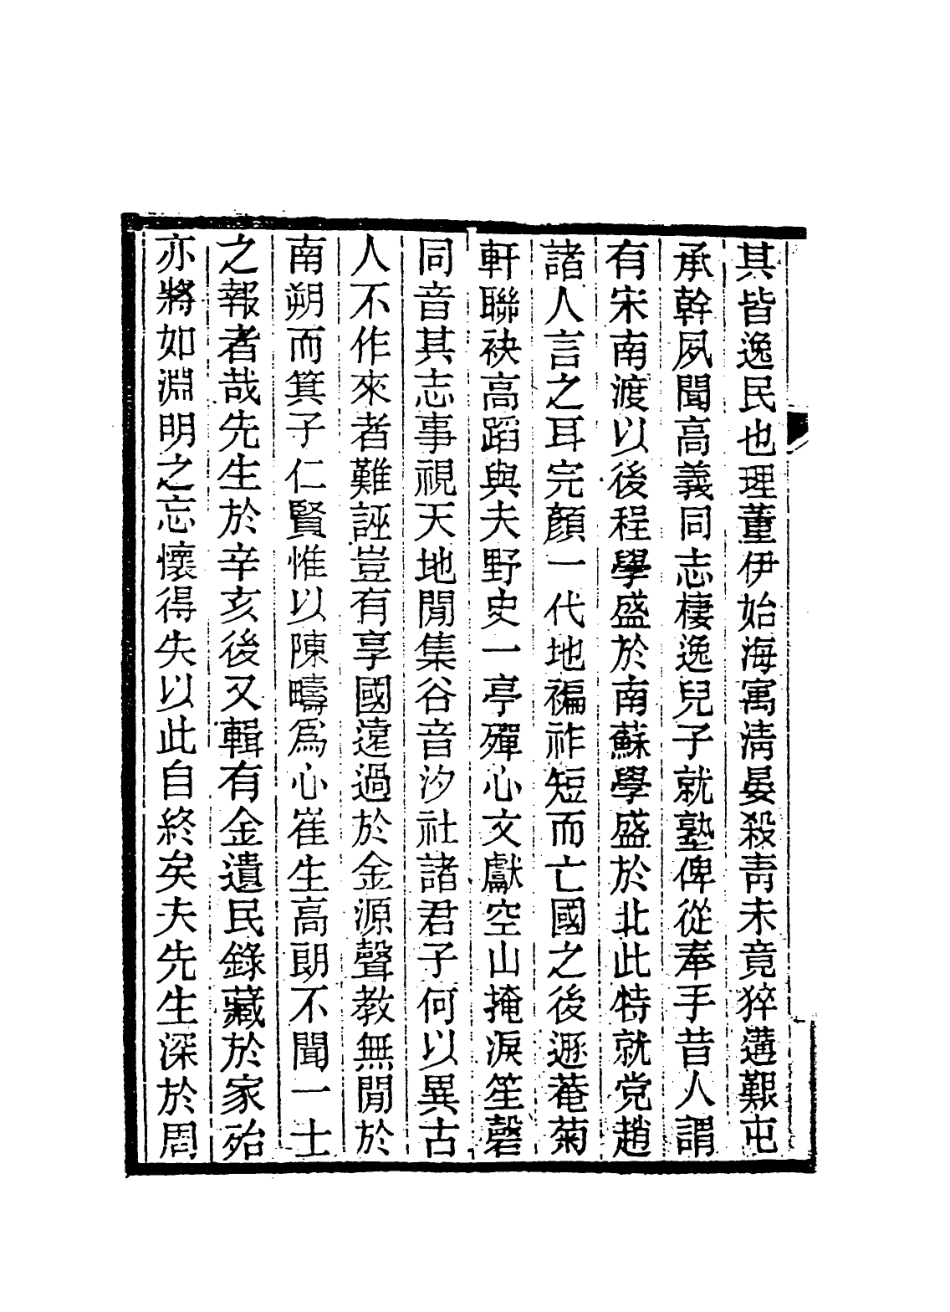 其皆逸民也理董伊始海寓淸晏殺靑未竟猝遘艱屯
承幹夙聞高義同志棲逸兒子就塾俾從奉手昔人謂
有宋南渡以後程學盛於南蘇學盛於北此特就党趙
諸人言之耳完顏一代地褊祚短而亡國之後遯菴菊
軒聯袂高蹈與夫野史一亭殫心文獻空山掩淚笙磬
同音其志事視天地閒集谷音汐社諸君子何以異古
人不作來者難誣豈有享國遠過於金源聲教無閒於
南朔而箕子仁賢惟以陳疇爲心崔生高朗不聞一士
之報者哉先生於辛亥後又輯有金遺民錄藏於家殆
亦將如淵明之忘懷得失以此自終矣夫先生深於周